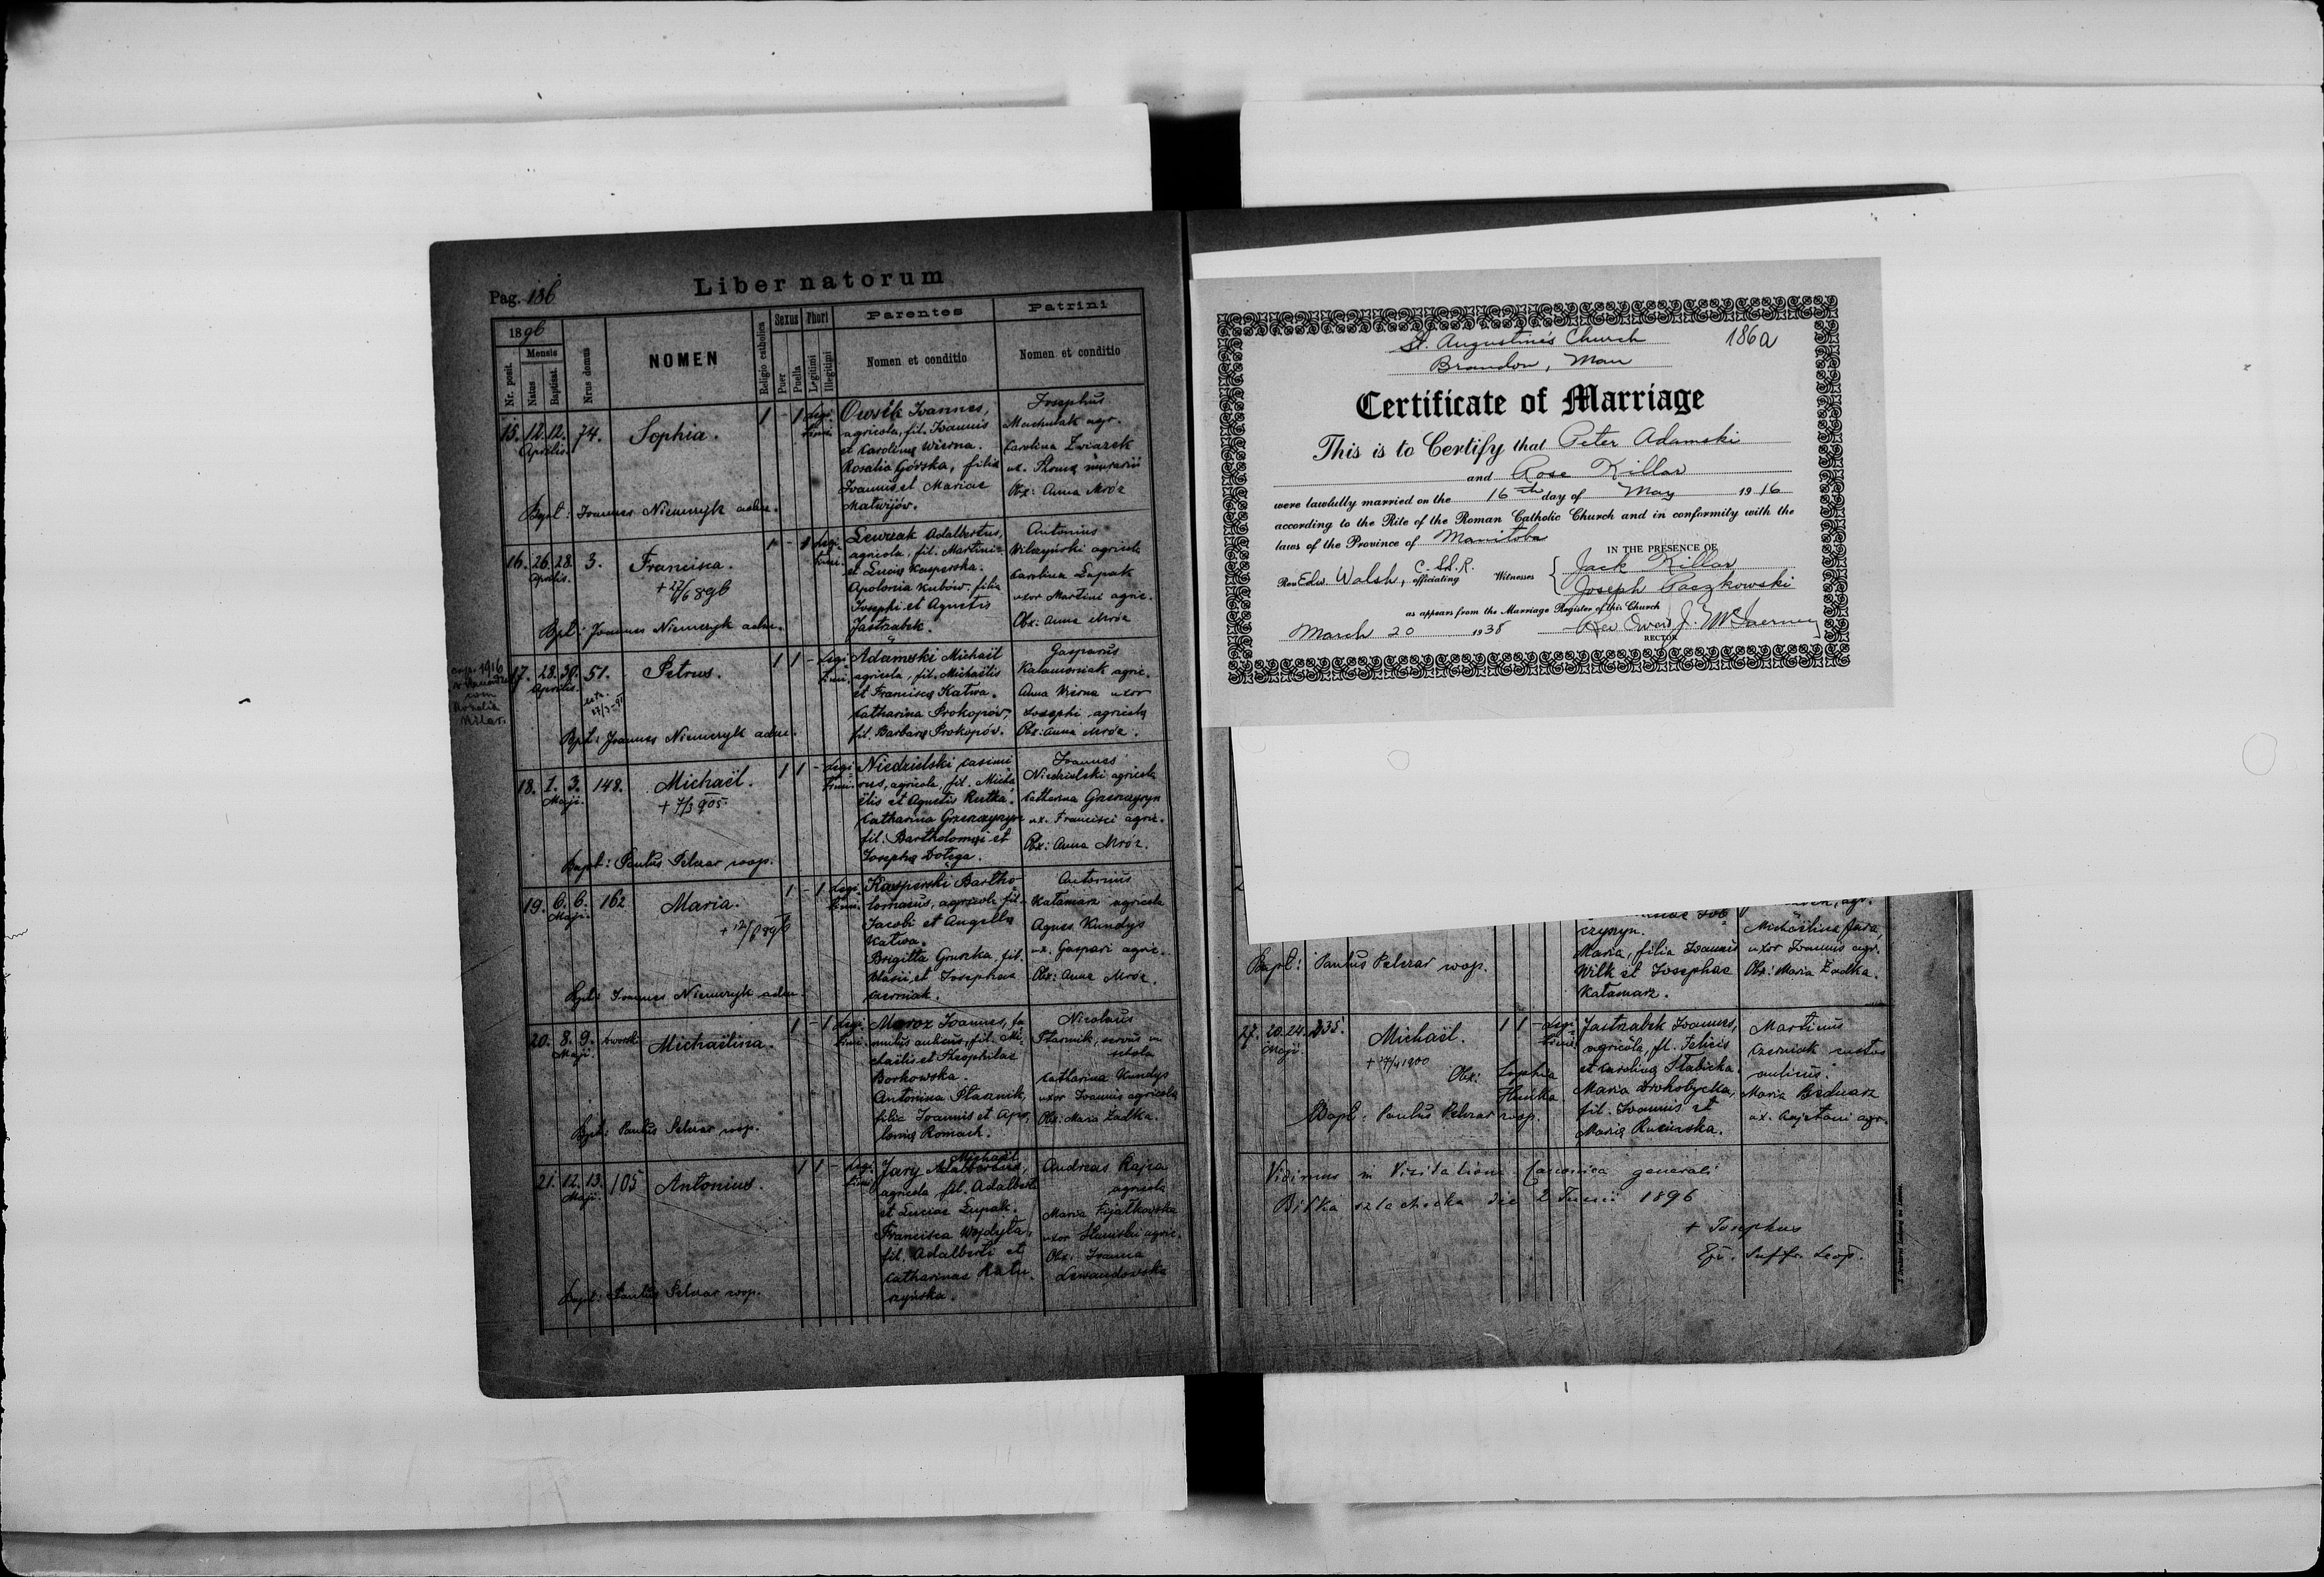 Liber natorum
Pag. 186
1896
Nr. posit.
Mensis
Natus
Baptisat.
Nrus domus
NOMEN
Religio catholica
Sexus
Puer
Puella
Thori
Legitimi
Illegitimi
Parentes
Nomen et conditio
Patrini
Nomen et conditio
15. 12. 12. Aprilis. 74. Sophia. 1 - 1 Legi
timi.
Owsik Joannes,
agricola, fil. Joannis
et Carolinę Wierna.
Rosalia Górska, filia
Joannis et Mariae
Matwijów.
Josephus
Machulak agr.
Carolina Zwiazek
ux. Thomę
Obx: Anna Mróz
Bapt: Joannes Niemczyk adm.
16. 26. 28. Aprilis. 3. Francisca. 1 - 1 Legi
timi.
Adalbertus,
agricola, fil. Martini
et Lucię Kasperska.
Apolonia Kubów. filia
Josephi et Agnetis
Jastrząbek.
Antonius
Wilczyński agricola
Carolina Łupak
uxor Martini agric.
Obx: Anna Mróz
+ 27/6 896
Bpt: Joannes Niemczyk adm.
17. 28. 30. Aprilis. 51. Petrus. 1 1 - Legi
timi.
Adamski Michaël
agricola, fil. Michaëlis
et Franciscę Katwa.
Catharina Prokopów,
fil. Barbarę Prokopów.
Gasparus
agric.
Anna Wierna uxor
Josephi agricolę
Obx: Anna Mróz.
1916
cum
Rosalia
Kilar.
Bpt: Joannes Niemczyk adm.
18. 1. 3. Maji. 148. Michaël. 1 1 - Legi
timi.
Niedzielski Casimi
rus, agricola, fil. Micha
ëlis et Agnetis Rutka.
Catharina Grzeszczyszyn
fil. Bartholomęi et
Josephę Dołęga.
Joannes
Niedzielski agricola
Catharina
ux. Francisci agric.
Obx: Anna Mróz.
+ 7/3 905
Bapt: Paulus Pelczar coop.
19. 6. 6. Maji. 162 Maria. 1 - 1 Legi
timi.
Kasperski Bartho
lomaeus, agricola fil.
Jacobi et Angella
Katwa.
Brigitta Gruszka. fil.
Blasii et Josephae
Czerniak.
Antonius
Katamarz agricola
Agnes Kundys
ux. Gaspari agric.
Obx: Anna Mróz.
Bpt: Joannes Niemczyk adm.
20. 8. 9. Maji. dworski Michaëlina. 1 - 1 Legi
timi.
Moroz Joannes, fa
mulus aulicus, fil. Mi
chaëlis et Theophilae
Borkowska.
Antonina Ptasznik,
filia Joannis et Apo
lonię Romach.
Nicolaus
Ptasznik, servus in
schola
Catharina Kundys
uxor Joannis agricolę
Obx: Maria Zadka.
Bpt: Paulus Pelczar coop.
21. 12. 13. Maji. 105 Antonius. 1 1 - Legi
timi
Michaël
Jary Adalbertus,
agricola fil. Adalberti
et Luciae Łupak.
Francisca Wojdyła,
fil. Adalberti et
Catharinae Ratu
szyńska.
Andreas Rajca
agricola
Maria Fijałkowska
uxor Stanislai agric.
Obx: Joanna
Lewandowska
Bapt: Paulus Pelczar coop.
St. Augustine's Church 186a
Brandon, Man
Certificate of Marriage
This is to Certify that Peter Adamski
and Rose Killar
were lawfully married on the 16th day of May 1916
according to the Rite of the Roman Catholic Church and in conformity with the
laws of the Province of Manitoba
IN THE PRESENCE OF
Rev Edw. Walsh, C.SS.R. officiating Witnesses Jack Killar
Joseph Paczkowski
as appears from the Marriage Register of this Church
March 20 1938 Rev Owen J. McInerney
RECTOR
czyszyn.
Maria, filia Joannis
Wilk et Josephae
Katamarz.
Michaëlina Jura,
uxor Joannis agr.
Obx: Maria Zadka.
Bapt: Paulus Pelczar coop.
27. 20. 24. Maji. 235. Michaël. 1 1 - Legi
timi.
Jastrząbek Joannes,
agricola, fil. Felicis
et Carolinę Słabicka.
Maria Drohobycka,
fil. Joannis et
Marię Rucińska.
Martinus
Czerniak custos
aulicus.
Maria Bednarz
ux. Cajetani agr.
Obx: Sophia
Hnitka
Bapt: Paulus Pelczar coop.
Vidimus in Visitatione Canonica generali
Biłka szlachecka die 2 Junii 1896
+ Josephus
Ep. Suffr. Leop.